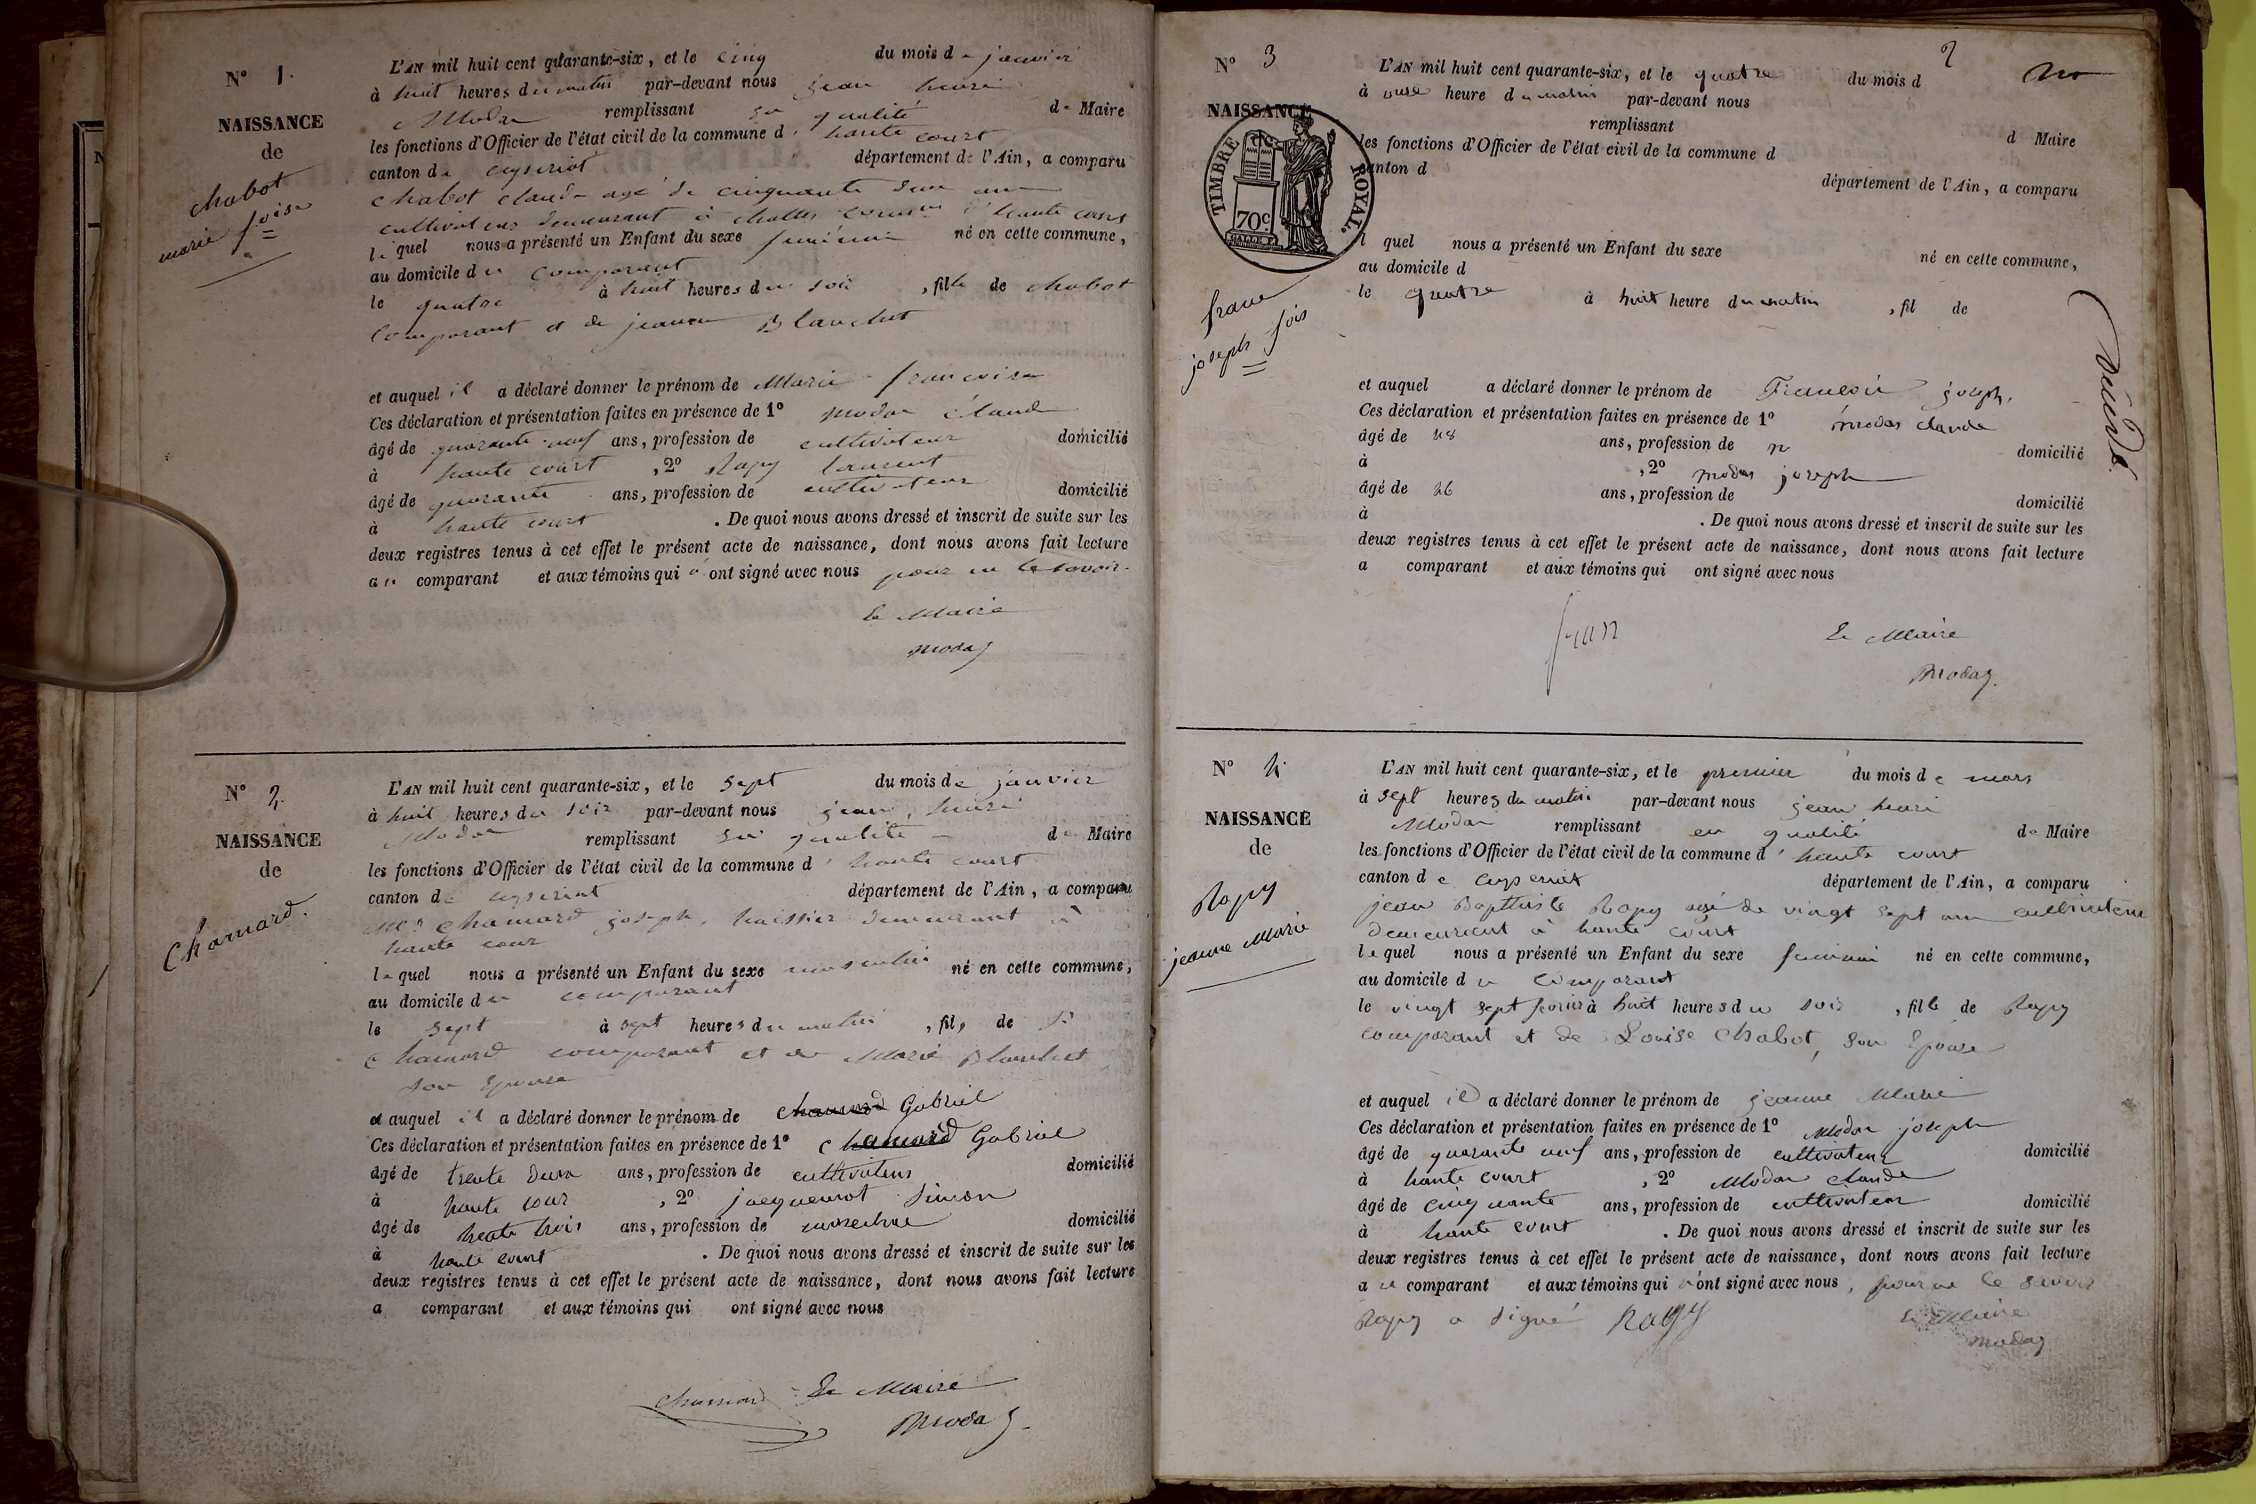 N° 1.
NAISSANCE
de
chabot
marie foise
L'AN mil huit cent quarante-six, et le cinq du mois de janvier
à huit heures du matin par-devant nous jean henri
Modas remplissant en qualité de Maire
les fonctions d'Officier de l'état civil de la commune d'haute court
canton de ceyseriat département de l'Ain, a comparu
chabot claude agé de cinquante deux ans
cultivateur demeurant à commune d'haute court
lequel nous a présenté un Enfant du sexe feminin né en cette commune,
au domicile du comparant
le quatre à huit heures du soir, fille de chabot
comparant et de jeanne Blanchet
et auquel il a déclaré donner le prénom de Marie francoise
Ces déclaration et présentation faites en présence de 1° modas claude
âgé de quarante neuf ans, profession de cultivateur domicilié
à haute court, 2° Rapy laurent
âgé de quarante ans, profession de cultivateur domicilié
à haute court. De quoi nous avons dressé et inscrit de suite sur les
deux registres tenus à cet effet le présent acte de naissance, dont nous avons fait lecture
au comparant et aux témoins qui n'ont signé avec nous pour ne le savoir.
le Maire
modas
N° 2.
NAISSANCE
de
Chamard.
L'AN mil huit cent quarante-six, et le sept du mois de janvier
à huit heures du soir par-devant nous jean henri
Modas remplissant en qualité de Maire
les fonctions d'Officier de l'état civil de la commune d'haute court
canton de ceyseriat département de l'Ain, a comparu
Mr Chamard joseph, huissier demeurant à
haute cour
lequel nous a présenté un Enfant du sexe masculin né en cette commune,
au domicile du comparant
le sept à sept heures du matin, fils de
chamard comparant et de Marie Blanchet
son epouse
et auquel il a déclaré donner le prénom de chamard Gabriel
Ces déclaration et présentation faites en présence de 1° chamard Gabriel
âgé de trente deux ans, profession de cultivateur domicilié
à haute cour, 2° jacquemot Simon
âgé de trente trois ans, profession de marechal domicilié
à haute court. De quoi nous avons dressé et inscrit de suite sur les
deux registres tenus à cet effet le présent acte de naissance, dont nous avons fait lecture
a comparant et aux témoins qui ont signé avec nous
chamard Le Maire
Modas
2
N° 3
NAISSANCE
TIMBRE ROYAL.
70c
franc
joseph fois
L'AN mil huit cent quarante-six, et le quatre du mois d
à onse heure du matin par-devant nous
remplissant d Maire
les fonctions d'Officier de l'état civil de la commune d
canton d département de l'Ain, a comparu
l quel nous a présenté un Enfant du sexe né en cette commune,
au domicile d
le quatre à huit heure du matin, fil de
et auquel a déclaré donner le prénom de Francois joseph.
Ces déclaration et présentation faites en présence de 1° modas claude
âgé de 48 ans, profession de domicilié
à, 2° modas joseph
âgé de 46 ans, profession de domicilié
à. De quoi nous avons dressé et inscrit de suite sur les
deux registres tenus à cet effet le présent acte de naissance, dont nous avons fait lecture
a comparant et aux témoins qui ont signé avec nous
Le Maire
Modas.
N° 4
NAISSANCE
de
Rapy
jeanne Marie
L'AN mil huit cent quarante-six, et le premier du mois de mars
à sept heures du matin par-devant nous jean henri
Modas remplissant en qualité de Maire
les fonctions d'Officier de l'état civil de la commune d'haute court
canton de ceyseriat département de l'Ain, a comparu
jean Baptiste Rapy agé de vingt sept ans cultivateur
demeurant à haute court
lequel nous a présenté un Enfant du sexe feminin né en cette commune,
au domicile du comparant
le vingt sept fevrier à huit heures du soir, fille de Rapy
comparant et de Louise Chabot, son Epouse
et auquel il a déclaré donner le prénom de jeanne Marie
Ces déclaration et présentation faites en présence de 1° Modas joseph
âgé de quarante neuf ans, profession de cultivateur domicilié
à haute court, 2° Modas claude
âgé de cinquante ans, profession de cultivateur domicilié
à haute court. De quoi nous avons dressé et inscrit de suite sur les
deux registres tenus à cet effet le présent acte de naissance, dont nous avons fait lecture
au comparant et aux témoins qui n'ont signé avec nous, pour ne le savoir
Rapy a signé Rapy Le Maire
modas